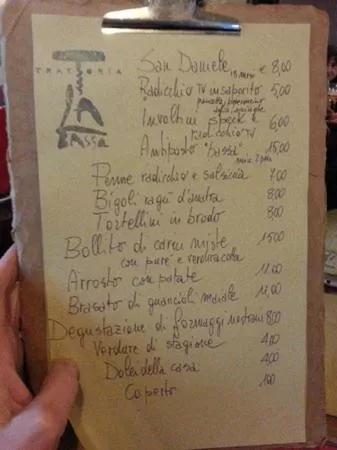 TRATTORIA
LA
BASSA
San Daniele 18 mesi € 8,00
Radicchio TV insaporito 5,00
pancetta, peperoncino
Involtini speck e 6,00
radicchio TV
Antipasto "bassa" 15,00
Penne radicchio e salsiccia 7,00
Bigoli ragù d'anatra 8,00
Tortellini in brodo 8,00
Bollito di carni miste 15,00
con purè e verdura cotta
Arrosto con patate 11,00
Brasato di guancioli maiale 11,00
Degustazione di formaggi nostrani 8,00
Verdure di stagione 4,00
Dolci della casa 4,00
Coperto 1,00